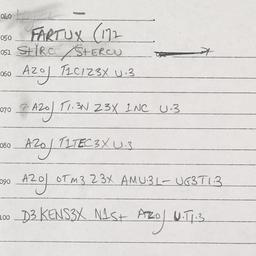 040
050 FARTUX (172
051 S+/RC /S+ERCU
060 AZOJ T1C1Z3X U.3
070 AZOJ T1.3N Z3X INC U.3
080 AZOJ T1TEC3X U.3
090 AZOJ OTM3 Z3X AMU3L- UG3T1.3
100 D3KENS3X N1S+ AZOJ U.T1.3